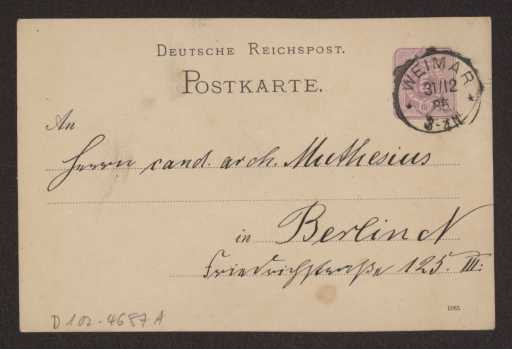 DEUTSCHE REICHSPOST.
POSTKARTE.
WEIMAR
31/12
85
3-4N
An
Herrn cand. arch. Muthesius
in Berlin N
Friedrichstraße 125. III.
D 102-4687 A